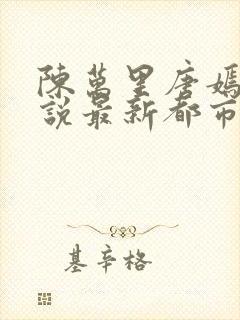 陳萬里唐嫣
說最新都市
基辛格